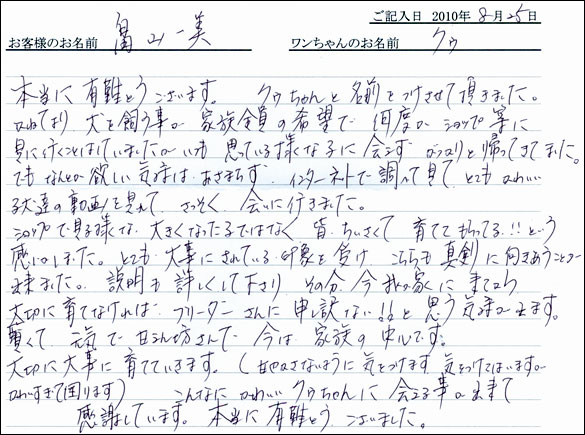 ご記入日 2010年8月25日
お客様のお名前 畠山一美 ワンちゃんのお名前 クゥ
本当に有難とうございます。 クゥちゃんと名前をつけさせて頂きました。
かねてより 犬を飼う事が 家族全員の希望で 何度か ショップ等に
見に行くことはしていましたが いつも 思っている様な子に会えず がっくりと帰ってきてました。
でも なんとか欲しい気持は おさまらず、インターネットで調べて見て とてもかわいい
子犬達の動画を見れて さっそく 会いに行きました。
ショップで見る様な 大きくなった子ではなく 皆 ちいさくて 育ててもらってる!! という
感じがしました。とても大事にされている印象を受け こちらも真剣に向きあうことが
出来ました。説明も詳しくして下さり その分 今 我が家に来てから
大切に育てなければ ブリーダーさんに申し訳ない!! と思う気持が出ます。
賢くて 元気で 甘えん坊さんで 今は 家族の中心です。
大切に大事に育てていきます。(甘やかさないように気をつけます 気をつけてはいますが
かわいすぎて困ります) こんなに かわいい クゥちゃんに 会える事が出来て
感謝しています。本当に有難とう ございました。